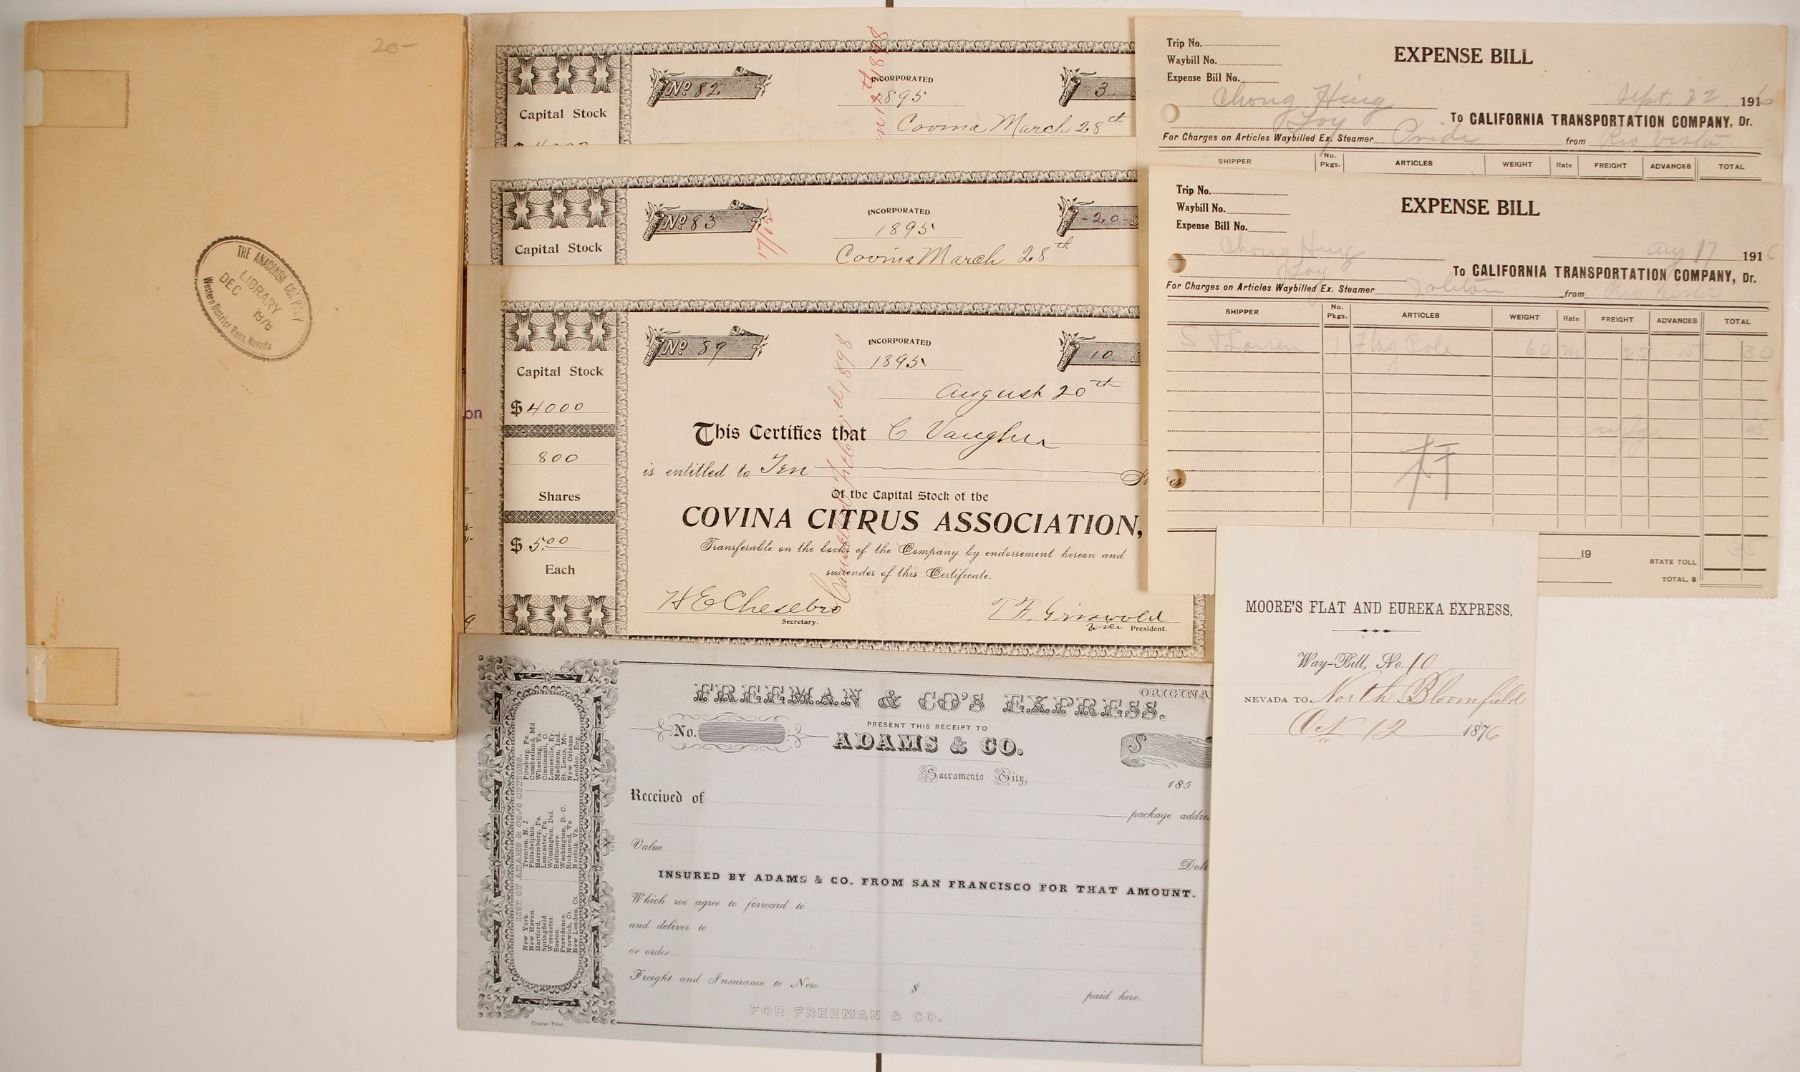 20-
THE ANACONDA COMPANY
LIBRARY
DEC 1976
Western District Reno, Nevada
Capital Stock
No 82
INCORPORATED
1895
3
Covina March 28th
Capital Stock
No 83
INCORPORATED
1895
-20-
Covina March 28th
on
Capital Stock
$4000
800
Shares
$5.00
Each
No 89
INCORPORATED
1895
10
August 20th
This Certifies that C Vaughn
is entitled to Ten
Of the Capital Stock of the
COVINA CITRUS ASSOCIATION,
Transferable on the books of the Company by endorsement hereon and
surrender of this Certificate.
H E Chesebro
Secretary.
T. F. Griswold
Vice President.
Trip No.
Waybill No.
Expense Bill No.
EXPENSE BILL
Chong Hing
Sept. 22 1916
Joy
To CALIFORNIA TRANSPORTATION COMPANY, Dr.
For Charges on Articles Waybilled Ex. Steamer Pride from Rio Vista
SHIPPER No. Pkgs. ARTICLES WEIGHT Rate FREIGHT ADVANCES TOTAL
Trip No.
Waybill No.
Expense Bill No.
EXPENSE BILL
Chong Hing
Aug 17 1916
Joy
To CALIFORNIA TRANSPORTATION COMPANY, Dr.
For Charges on Articles Waybilled Ex. Steamer from Rio Vista
SHIPPER No. Pkgs. ARTICLES WEIGHT Rate FREIGHT ADVANCES TOTAL
1 Flag Pole 60 m 25 5 30
19
STATE TOLL
TOTAL, $
MOORE'S FLAT AND EUREKA EXPRESS.
Way-Bill, No. 10
NEVADA TO North Bloomfield
Oct 12 1876
FREEMAN & CO'S EXPRESS.
ORIGINA
No.
PRESENT THIS RECEIPT TO
ADAMS & CO.
$
Sacramento City,
185
Received of
package addre
Value
Doll
INSURED BY ADAMS & CO. FROM SAN FRANCISCO FOR THAT AMOUNT.
Which we agree to forward to
and deliver to
or order
Freight and Insurance to New $ paid here.
FOR FREEMAN & CO.
LIST OF ADAMS & CO'S OFFICES.
New York.
New Haven.
Hartford.
Springfield.
Worcester.
Boston.
Providence.
Norwich, Ct.
New London, Ct.
Trenton, N. J.
Philadelphia.
Harrisburg, Pa.
Lancaster, Pa.
Wilmington, Del.
Baltimore.
Washington, D. C.
Richmond, Va
Norfolk, Va.
Pittsburg, Pa.
Cumberland, Md
Wheeling, Va.
Cincinnati, O.
Louisville, Ky.
Madison, Ind.
St. Louis, Mo.
New Orleans.
London, Eng.